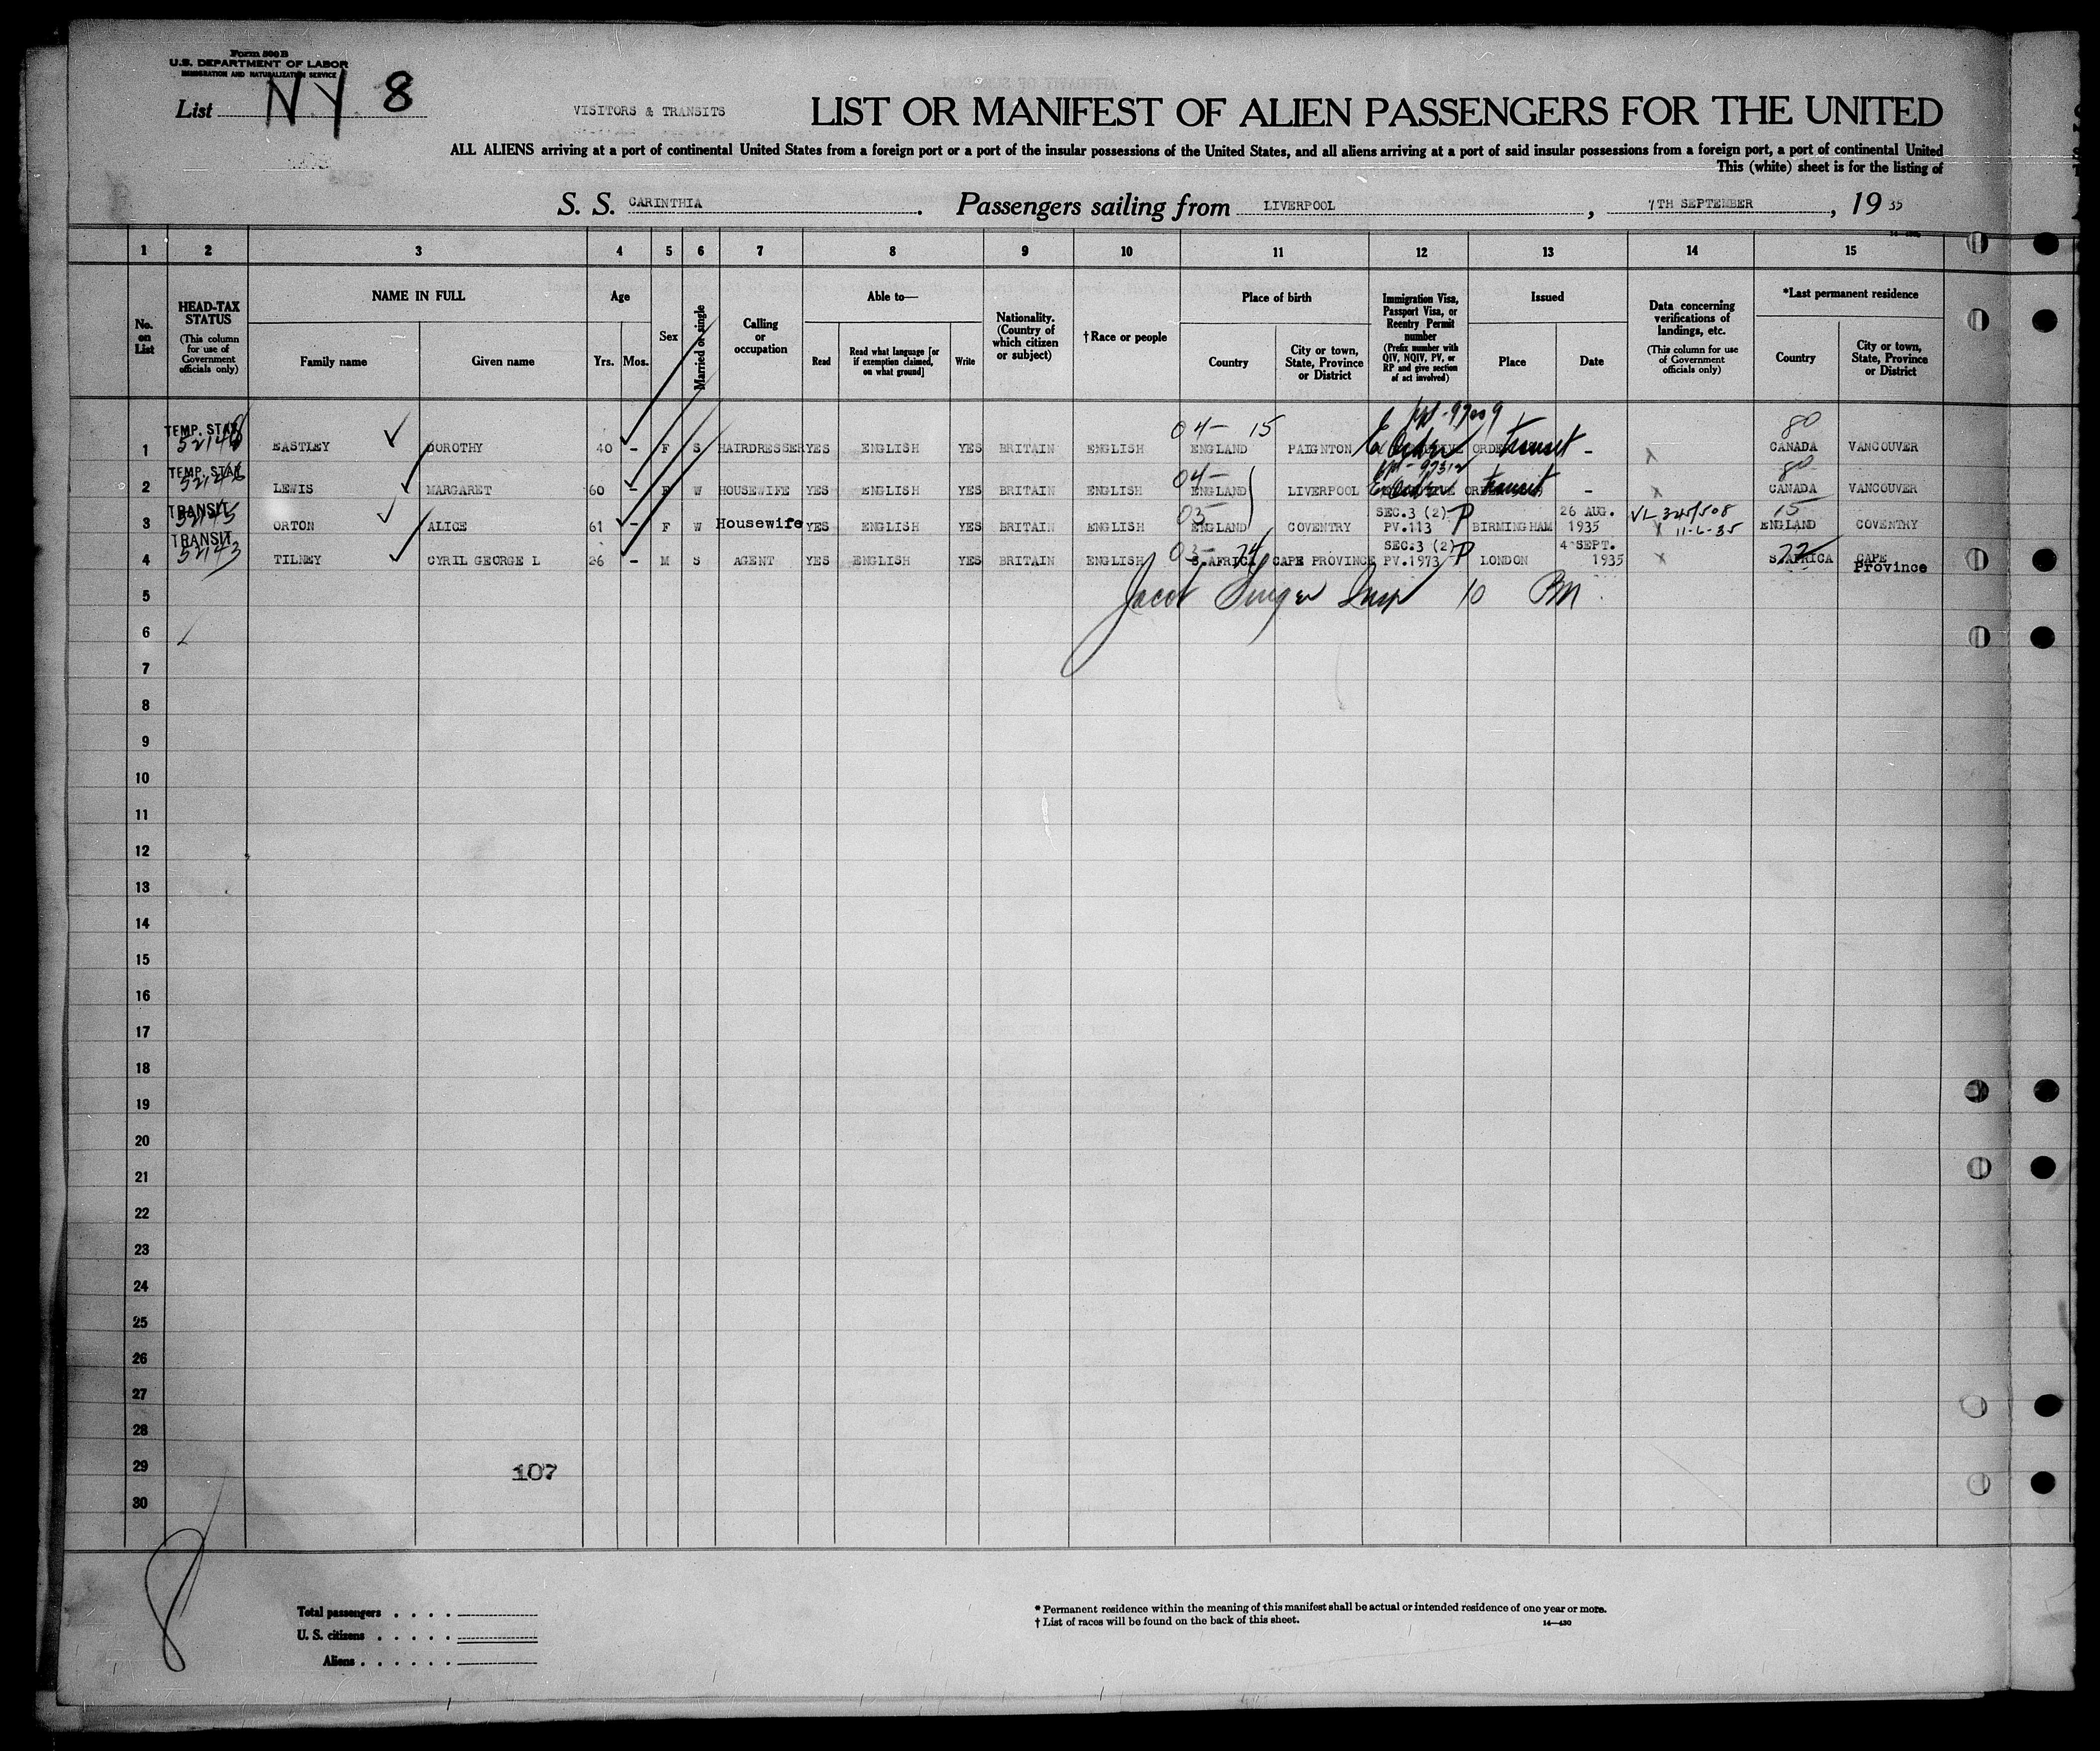 Form 500 B
U.S. DEPARTMENT OF LABOR
IMMIGRATION AND NATURALIZATION SERVICE
List NY 8
VISITORS & TRANSITS
LIST OR MANIFEST OF ALIEN PASSENGERS FOR THE UNITED
ALL ALIENS arriving at a port of continental United States from a foreign port or a port of the insular possessions of the United States, and all aliens arriving at a port of said insular possessions from a foreign port, a port of continental United
This (white) sheet is for the listing of
S. S. CARINTHIA. Passengers sailing from LIVERPOOL, 7TH SEPTEMBER, 19 35
1 2 3 4 5 6 7 8 9 10 11 12 13 14 15
No. on List
HEAD-TAX STATUS
(This column for use of Government officials only)
NAME IN FULL
Family name
Given name
Age
Yrs. Mos.
Sex
Married or single
Calling or occupation
Able to—
Read
Read what language [or if exemption claimed, on what ground]
Write
Nationality. (Country of which citizen or subject)
†Race or people
Place of birth
Country
City or town, State, Province or District
Immigration Visa, Passport Visa, or Reentry Permit number
(Prefix number with QIV, NQIV, PV, or RP and give section of act involved)
Issued
Place
Date
Data concerning verifications of landings, etc.
(This column for use of Government officials only)
*Last permanent residence
Country
City or town, State, Province or District
04- 15 80
TEMP. STAY
1 EASTLEY DOROTHY 40 - F S HAIRDRESSER YES ENGLISH YES BRITAIN ENGLISH ENGLAND PAIGNTON transit - x CANADA VANCOUVER
04- 80
TEMP. STAY 52146
2 LEWIS MARGARET 60 - F W HOUSEWIFE YES ENGLISH YES BRITAIN ENGLISH ENGLAND LIVERPOOL transit - x CANADA VANCOUVER
TRANSIT 52145 03 SEC.3 (2) P 26 AUG. 15
3 ORTON ALICE 61 - F W Housewife YES ENGLISH YES BRITAIN ENGLISH ENGLAND COVENTRY PV.113 BIRMINGHAM 1935 x 11-6-35 ENGLAND COVENTRY
TRANSIT 52143 03- 74 SEC.3 (2) P 4 SEPT. 72
4 TILNEY CYRIL GEORGE L 26 - M S AGENT YES ENGLISH YES BRITAIN ENGLISH S.AFRICA CAPE PROVINCE PV.1973 LONDON 1935 x S.AFRICA CAPE Province
5 Jacob Singer Insp 10
6
7
8
9
10
11
12
13
14
15
16
17
18
19
20
21
22
23
24
25
26
27
28
29 107
30
8
Total passengers . . . .
U. S. citizens . . . . .
Aliens . . . . . .
* Permanent residence within the meaning of this manifest shall be actual or intended residence of one year or more.
† List of races will be found on the back of this sheet.
14—430